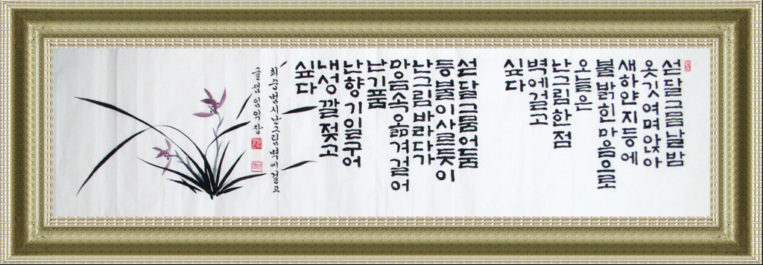 섣달그믐날밤
옷깃여며앉아
새하얀지등에
불밝힌마음으로
오늘은
난그림한점
벽에걸고
싶다
섣달그믐어둠
등불이사를듯이
난그림바라다
마음속옮겨걸어
난기품
난향기일구어
내성깔젖고
싶다
최승범시난그림벽에걸고